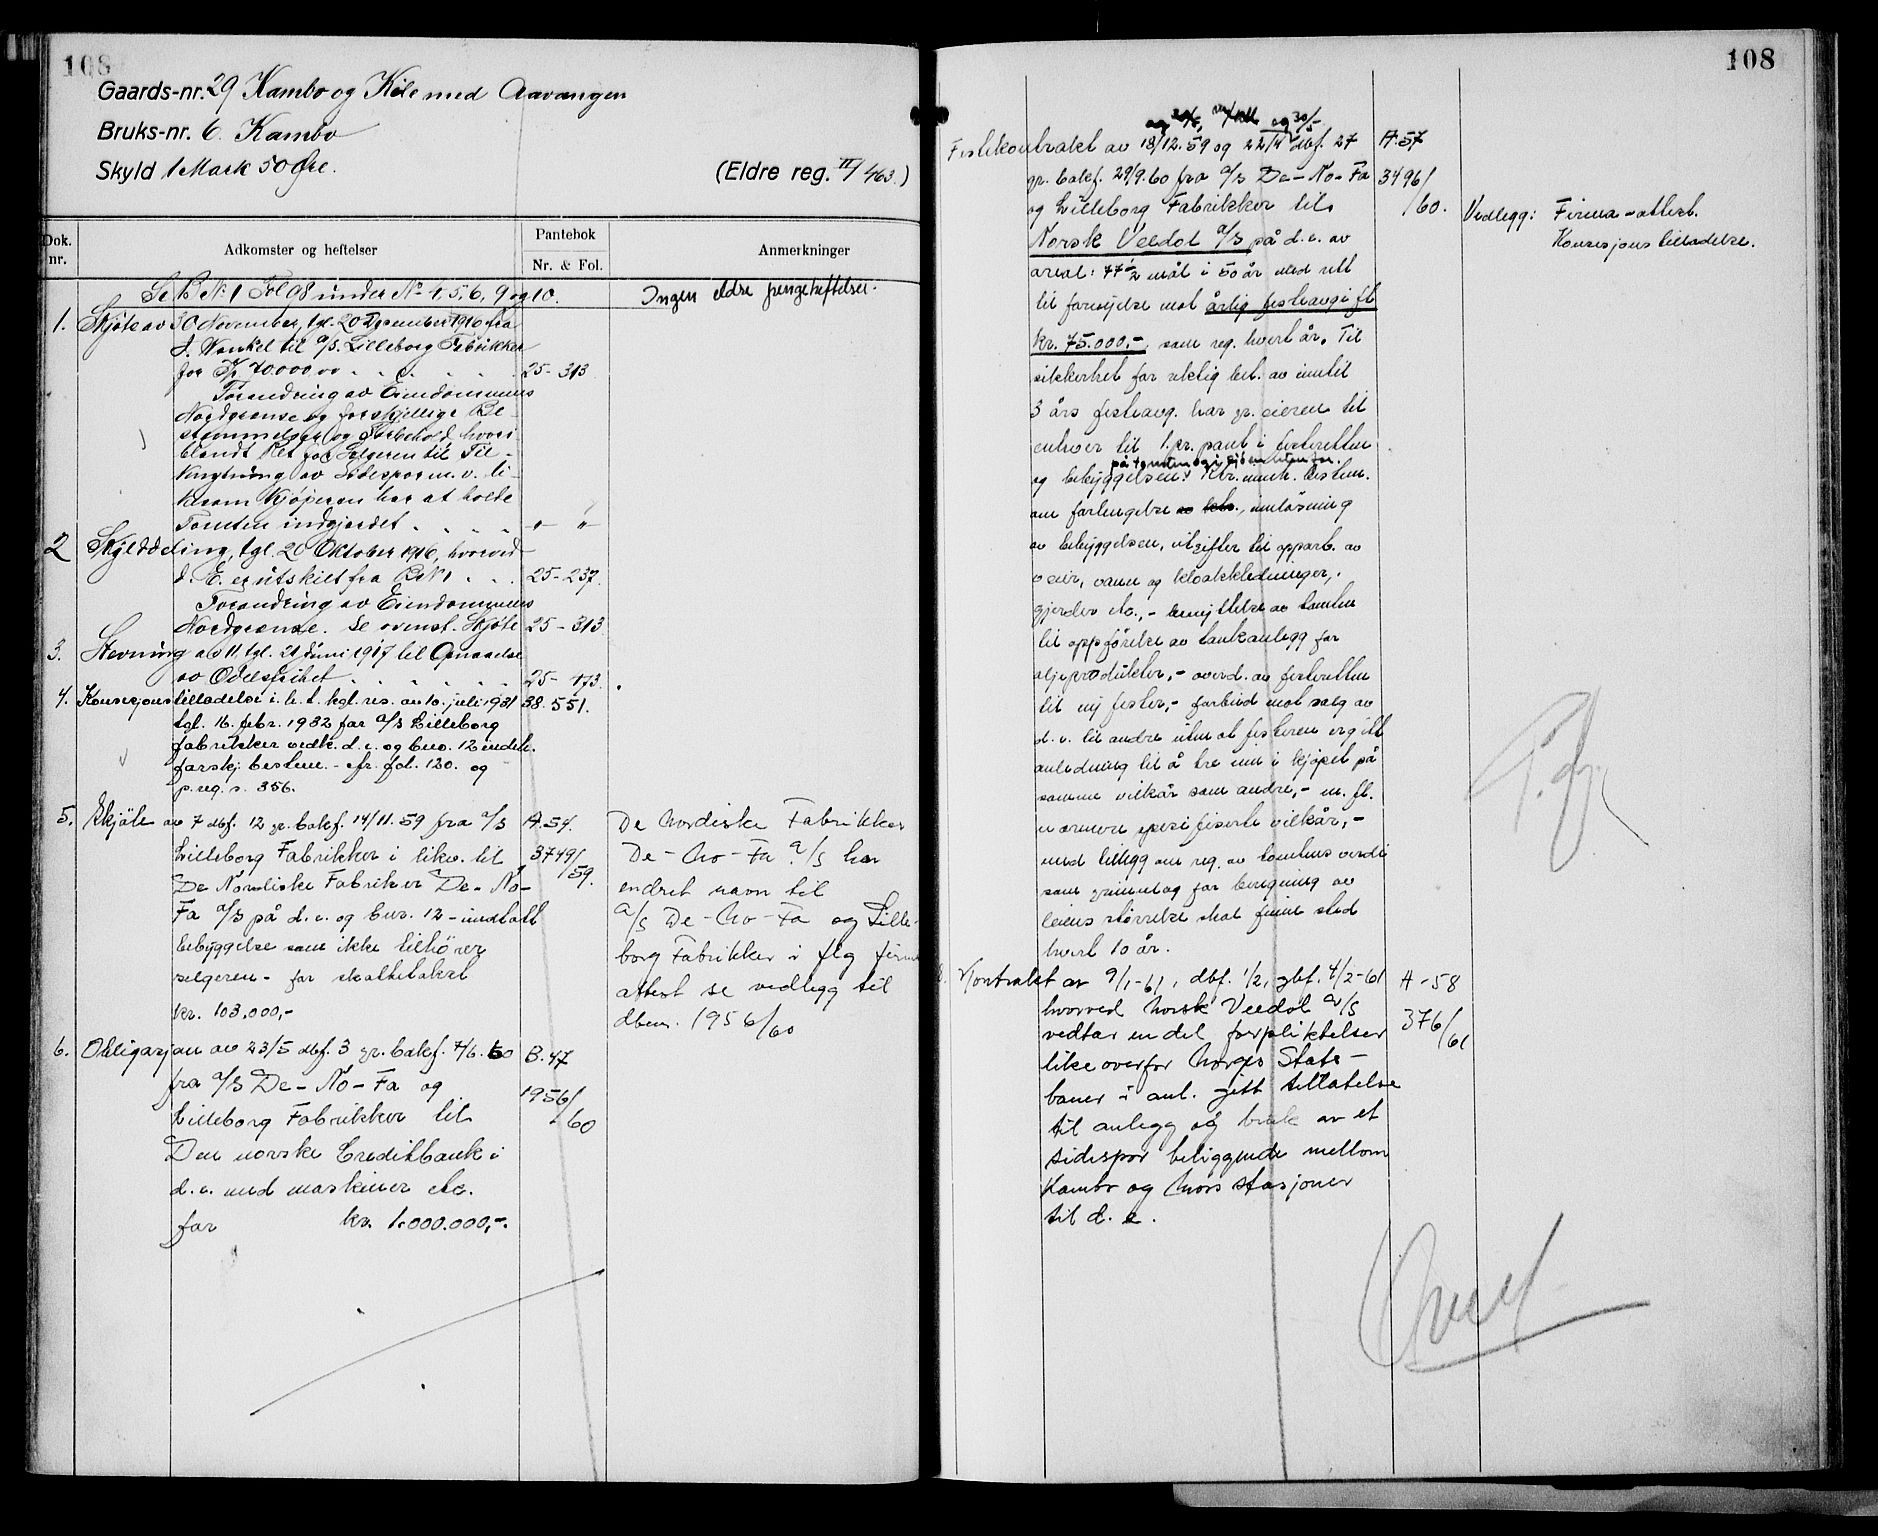 108
Gaards-nr. 29 Kambo og Kile med Aavangen
Bruks-nr. 6. Kambo
Skyld 1 Mark 50 Øre.
(Eldre reg. II/463.)
Dok. nr.
Adkomster og heftelser
Pantebok
Nr. & Fol.
Anmerkninger
Se B No 1 Fol 98 under No 4, 5, 6, 9 og 10.
Ingen eldre pengeheftelser.
1. Skjøte av 30 November, tgl. 20 Desember 1916 fra
J. Wankel til A/S. Lilleborg Fabrikker
for Kr 70000,00 . . . . . 25 - 313
Forandring av Eiendommens
Nordgrænse og forskjellige Be-
stemmelser og Forbehold, hvori-
blandt Ret for Selgeren til Til-
knytning av Sidespor m. v. li-
kesom Kjøperen har at holde
Tomten indgjerdet . . . . . -"- "-
2 Skylddeling, tgl. 20 Oktober 1916, hvorved
d. E. er utskilt fra B.No 1 . . . 25 - 237.
Forandring av Eiendommens
Nordgrænse. Se ovenst. Skjøte 25 - 313
3. Stevning av 11 tgl. 21 Juni 1917 til
av Odelsrihet . . . . . . 25 - 173.
4. Konsesjonstilladelse i h. t. kgl. res. av 10. juli 1931 38. 551.
tgl. 16. febr. 1932 for A/S Lilleborg
fabrikker vedk. d. e. og bno. 12 indeh.
forskj. bestem. - cfr. fol. 120. og
p.reg. s. 356.
5. Skjøte av 7 dbf. 12 gr. bakf. 14/11. 59 fra A/S A. 54.
Lilleborg Fabrikker i likv. til 3749/59.
De Nordiske Fabriker De-No-
Fa A/S på d. e. og bnr. 12 - unntatt
bebyggelse som ikke tilhører
selgeren - for skattetakst
kr. 103.000,-
De Nordiske Fabrikker
De-No-Fa A/S har
endret navn til
A/S De-No-Fa og Lille-
borg Fabrikker i flg firma
attest se vedlegg til
dbnr. 1956/60
6. Obligasjon av 23/5 dbf. 3 gr. bakf. 7/6. 60 B. 47
fra A/S De-No-Fa og 1956/60
Lilleborg Fabrikker til
Den norske Creditbank i
d. e. med maskiner etc.
for kr. 1.000.000,-.
108
og 30/5
Festekontrakt av 18/12. 59 og 22/4 dbf. 27 A. 57
gr. bakf. 29/9. 60 fra A/S De-No-Fa 3496/60.
og Lilleborg Fabrikker til
Norsk Veedol A/S på d. e. av
areal: 77 1/2 mål i 50 år med rett
til fornyelse mot årlig festeavgift
kr. 75.000,-, som reg. hvert år. Til
sikkerhet for riktig bet. av inntil
3 års festeavg. har gr. eieren til
enhver tid 1. pr. pant i festeretten
på tomten og i
og bebyggelsen. Ktr. inneh. bestem.
om forlengelse, innløsning
av bebyggelsen, utgifter til opparb. av
veier, vann og kloakkledninger,
gjerder etc., - benyttelse av tomten
til oppførelse av tankanlegg for
oljeprodukter, - overd. av festeretten
til ny fester, - forbud mot salg av
d. e. til andre uten at festeren er gitt
anledning til å tre inn i kjøpet på
samme vilkår som andre, - m. fl.
nærmere spesifiserte vilkår, -
med tillegg om reg. av tomtens verdi
som grunnlag for beregning av
leiens størrelse skal finne sted
hvert 10 år.
Vedlegg: Firma-attest.
Konsesjonstilladelse.
Kontrakt av 9/1-61, dbf. 1/2, gbf. 4/2-61 A - 58
hvorved Norsk Veedol A/S 376/61
vedtar en del forpliktelser
like overfor Norges Stats-
baner i anl. gitt tillatelse
til anlegg og bruk av et
sidespor beliggende mellom
Kambo og Moss stasjoner
til d. e.